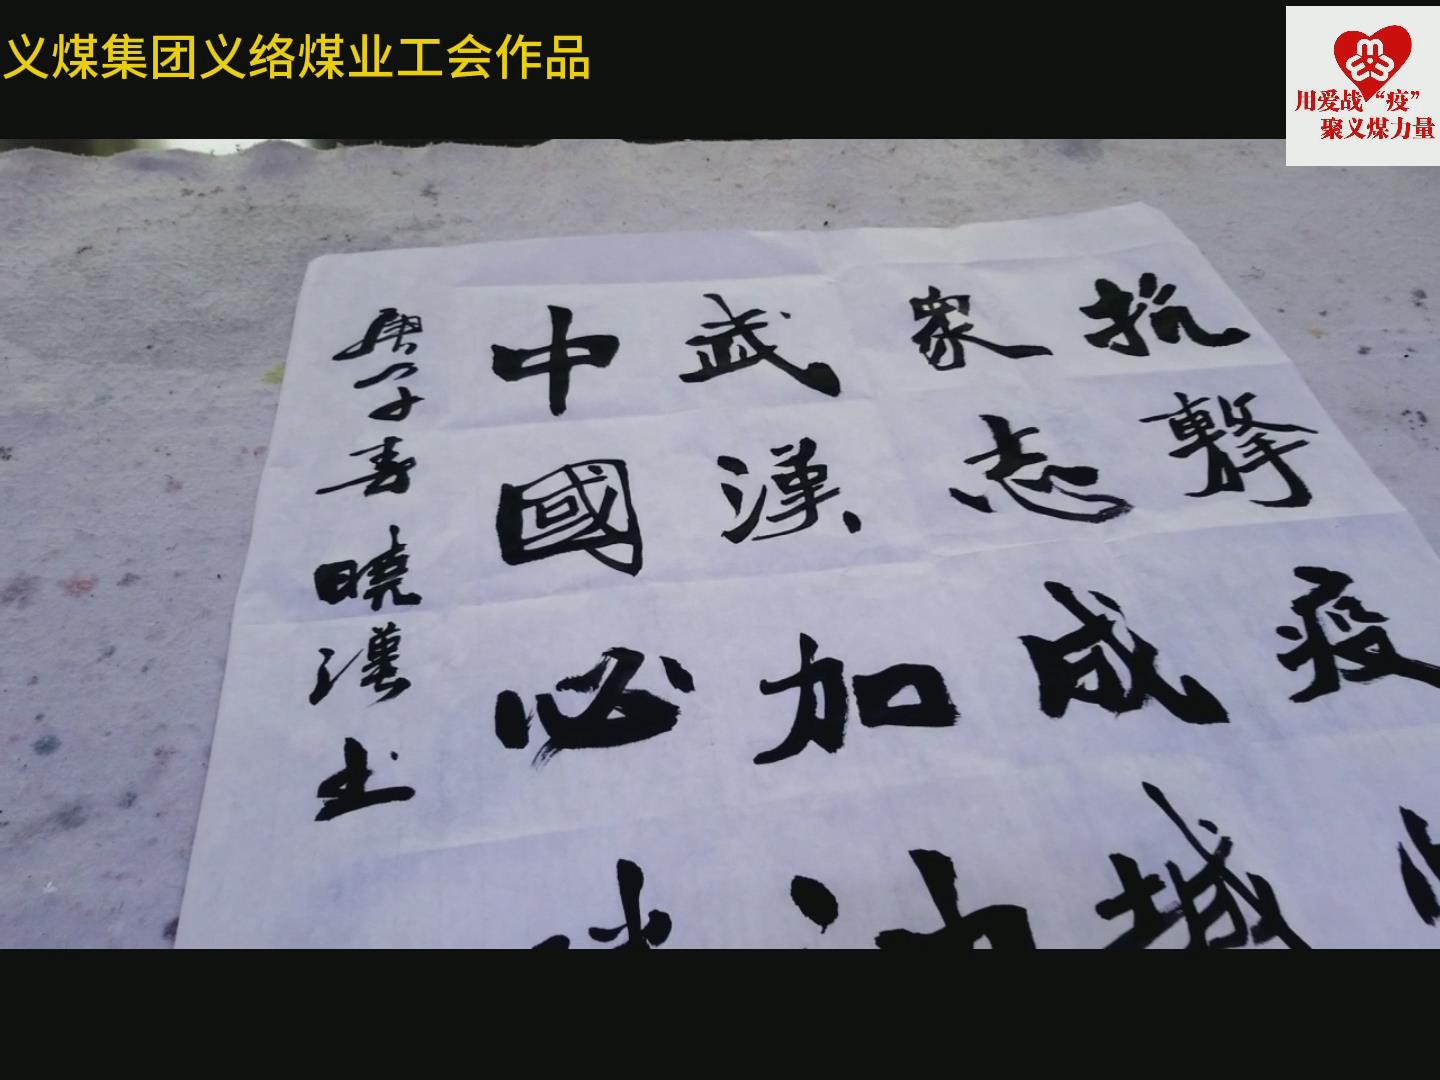 义煤集团义络煤业工会作品
用爱战“疫”
聚义煤力量
抗擊疫
眾志成城
武漢加油
中國必
庚子春曉漢书